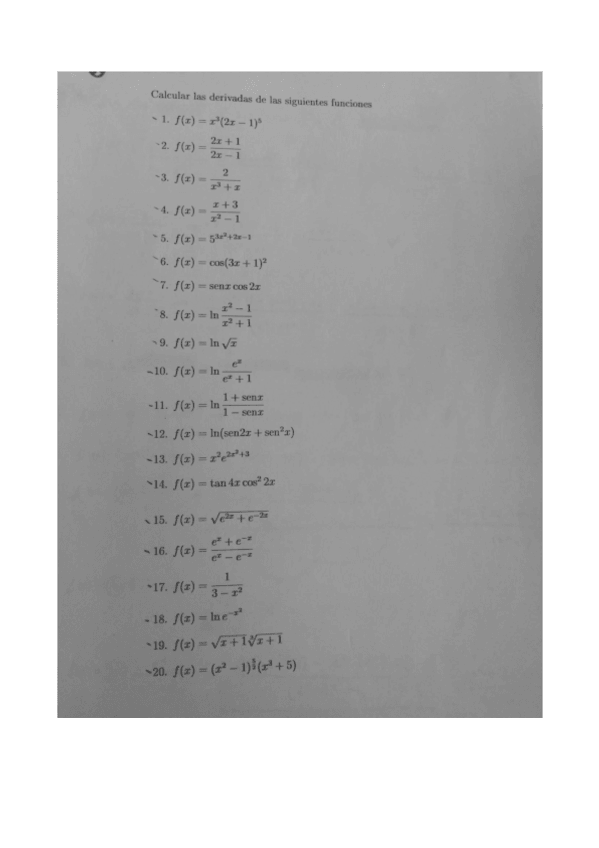 Calcular las derivadas de las siguientes funciones
1. f(x) = x²(2x − 1)³
2. f(x) = (2x + 1)/(2x − 1)
3. f(x) = 2/(x³ + x)
4. f(x) = (x + 3)/(x² − 1)
5. f(x) = 5^(3x²+2x−1)
6. f(x) = cos(3x + 1)²
7. f(x) = senx cos 2x
8. f(x) = ln (x² − 1)/(x² + 1)
9. f(x) = ln √x
10. f(x) = ln eˣ/(eˣ + 1)
11. f(x) = ln (1 + senx)/(1 − senx)
12. f(x) = ln(sen2x + sen²x)
13. f(x) = x²e^(2x²+3)
14. f(x) = tan 4x cos² 2x
15. f(x) = √(e^(2x) + e^(−2x))
16. f(x) = (eˣ + e⁻ˣ)/(eˣ − e⁻ˣ)
17. f(x) = 1/(3 − x²)
18. f(x) = ln e^(−x²)
19. f(x) = √(x + 1) √(x + 1)
20. f(x) = (x² − 1) (x³ + 5)